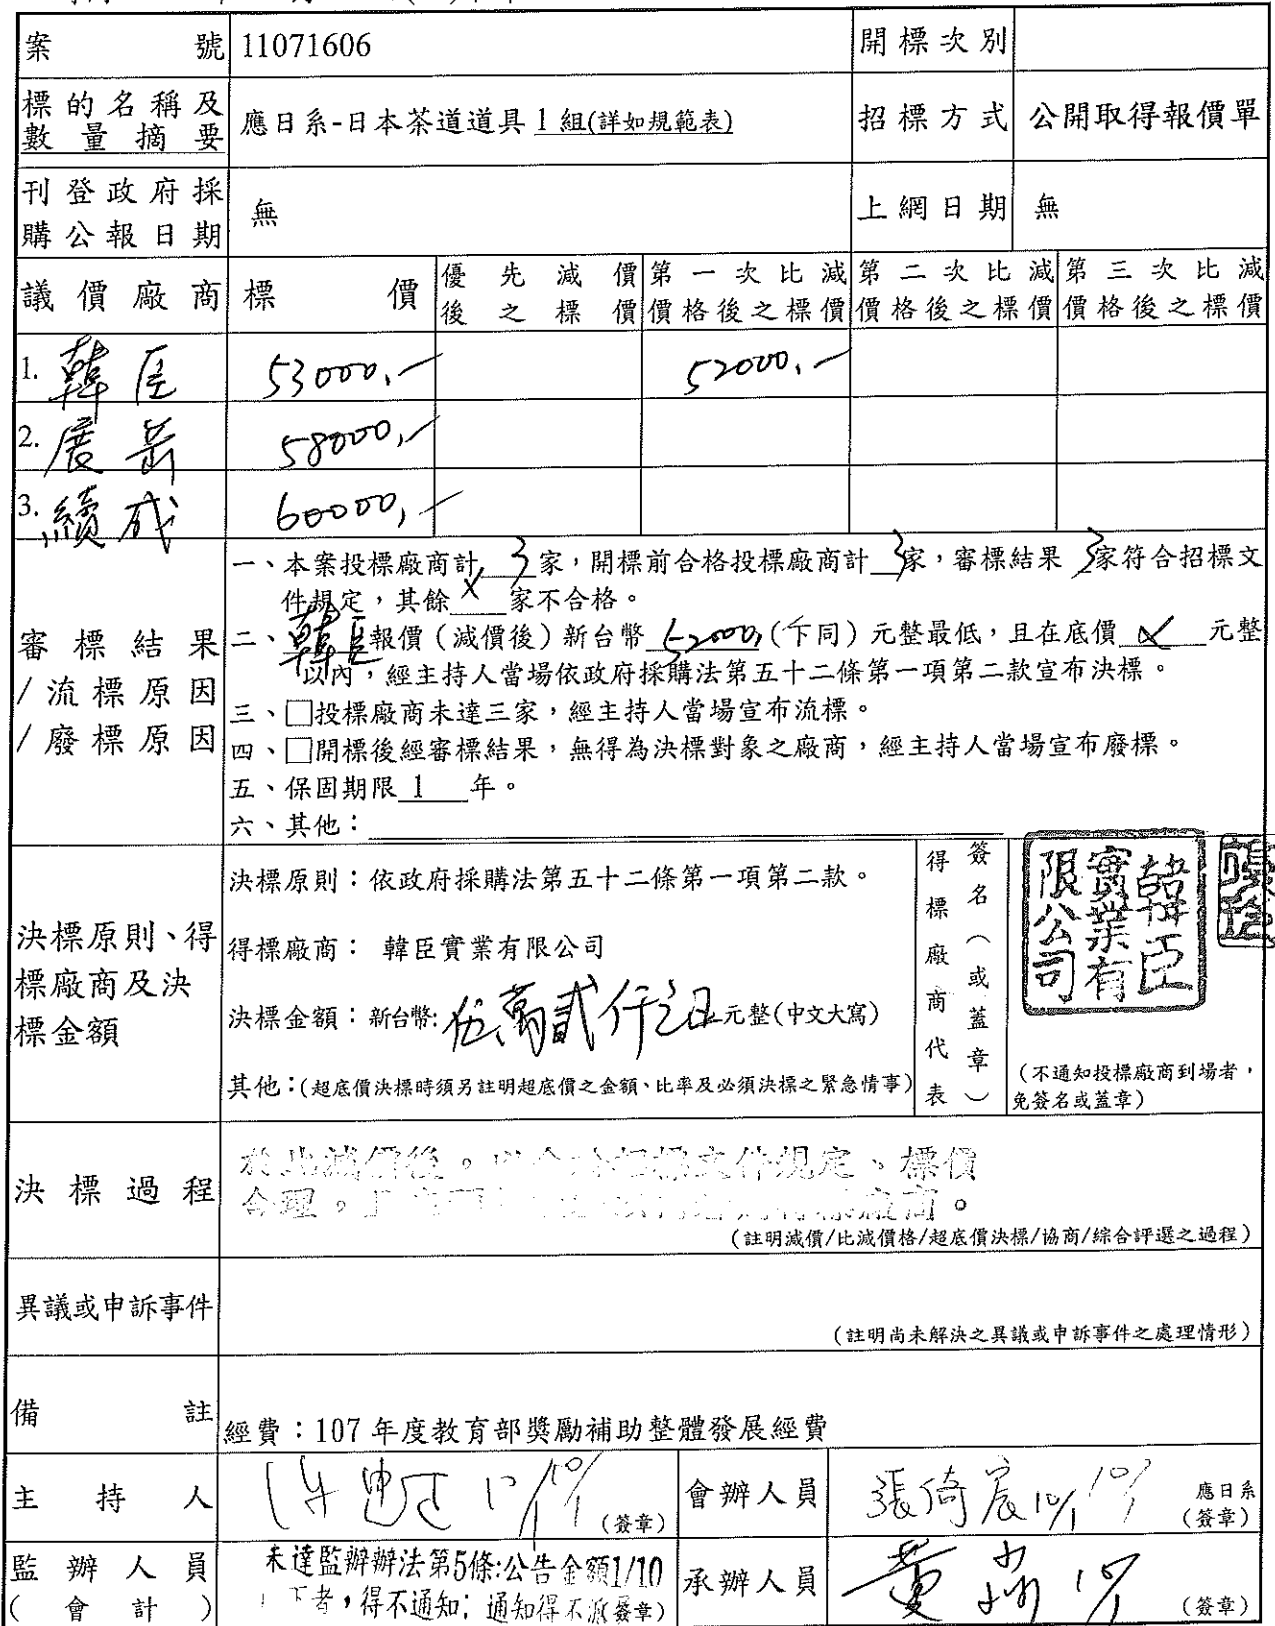 案號 11071606 開標次別
標的名稱及數量摘要 應日系-日本茶道道具 1 組(詳如規範表) 招標方式 公開取得報價單
刊登政府採購公報日期 無 上網日期 無
議價廠商 標價 優先減價後之標價 第一次比減價格後之標價 第二次比減價格後之標價 第三次比減價格後之標價
1. 韓臣 53000.- 52000.-
2. 展岳 58000,-
3. 續成 60000,-
審標結果/流標原因/廢標原因
一、本案投標廠商計 3 家,開標前合格投標廠商計 3 家,審標結果 3 家符合招標文
件規定,其餘 X 家不合格。
二、韓臣報價(減價後)新台幣 52000,(下同)元整最低,且在底價 X 元整
以內,經主持人當場依政府採購法第五十二條第一項第二款宣布決標。
三、□投標廠商未達三家,經主持人當場宣布流標。
四、□開標後經審標結果,無得為決標對象之廠商,經主持人當場宣布廢標。
五、保固期限 1 年。
六、其他:
決標原則、得標廠商及決標金額
決標原則:依政府採購法第五十二條第一項第二款。
得標廠商: 韓臣實業有限公司
決標金額:新台幣:伍萬貳仟 元整(中文大寫)
其他:(超底價決標時須另註明超底價之金額、比率及必須決標之緊急情事)
得標廠商代表 簽名(或蓋章)
韓臣實業有限公司
(不通知投標廠商到場者,
免簽名或蓋章)
決標過程
於比減價後。 招標文件規定、標價
合理。 廠商。
(註明減價/比減價格/超底價決標/協商/綜合評選之過程)
異議或申訴事件
(註明尚未解決之異議或申訴事件之處理情形)
備註 經費:107 年度教育部獎勵補助整體發展經費
主持人 10/1 (簽章) 會辦人員 張倚宸 10/1 應日系 (簽章)
監辦人員(會計) 未達監辦辦法第5條:公告金額1/10
下者,得不通知; 通知得不派 簽章) 承辦人員 黃 10/1 (簽章)